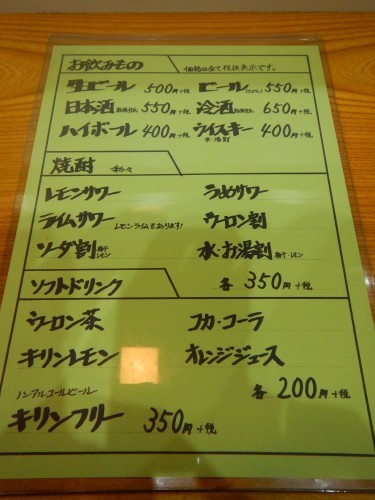 お飲みもの 価格は全て税抜表示です。
生ビール 500円+税 ビール 550円+税
日本酒 550円+税 冷酒 650円+税
ハイボール 400円+税 ウイスキー 400円+税
焼酎
レモンサワー うめサワー
ライムサワー レモンライムもあります! ウーロン割
ソーダ割 梅干 レモン 水・お湯割 梅干・レモン
ソフトドリンク 各 350円+税
ウーロン茶 コカ・コーラ
キリンレモン オレンジジュース
ノンアルコールビール 各 200円+税
キリンフリー 350円+税